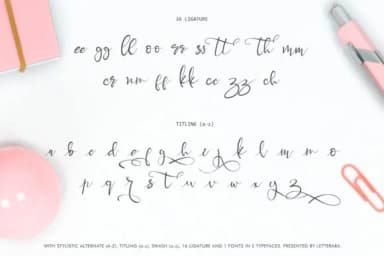 16 LIGATURE
ee gg ll oo rr ss tt th mm
er nn ff kk cc zz ch
TITLING (a-z)
a b c d e f g h i j k l m n o
p q r s t u v w x y z
WITH STYLISTIC ALTERNATE (A-Z), TITLING (a-z), SWASH (a-z), 16 LIGATURE AND 7 FONTS IN 2 TYPEFACES. PRESENTED BY LETTERARA.